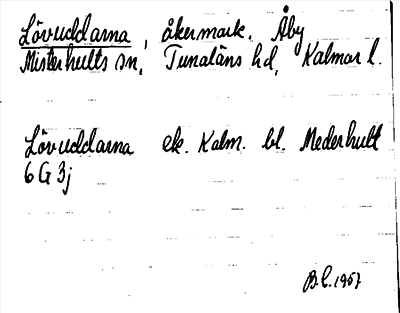 Lövuddarna, åkermark. Åby
Misterhults sn, Tunaläns hd, Kalmar l.
Lövuddarna ek. Kalm. bl. Mederhult
6G 3j
B.C. 1967